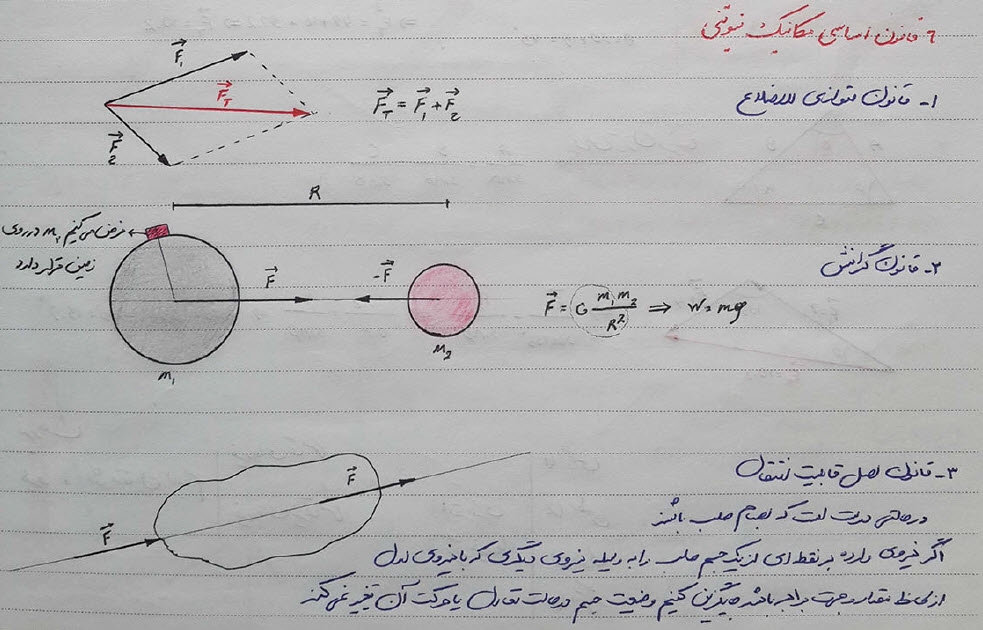 ۶ قانون اساسی مکانیک نیوتنی
۱- قانون متوازی الاضلاع
F₁
F_T
F₂
F_T = F₁ + F₂
R
فرض می کنیم m₂ در روی
زمین قرار دارد
۲- قانون گرانش
F
-F
m₁
M₂
F = G m₁m₂ / R² ⇒ W = mg
۳- قانون اصل قابلیت انتقال
F
F
درحالتی درست است که اجسام صلب باشند
اگر نیروی وارده بر نقطه ای از یک جسم صلب را به وسیله نیروی دیگری که با نیروی اول
از لحاظ مقدار و جهت برابر باشد جایگزین کنیم وضعیت جسم در حالت تعادل یا حرکت آن تغییر نمی کند